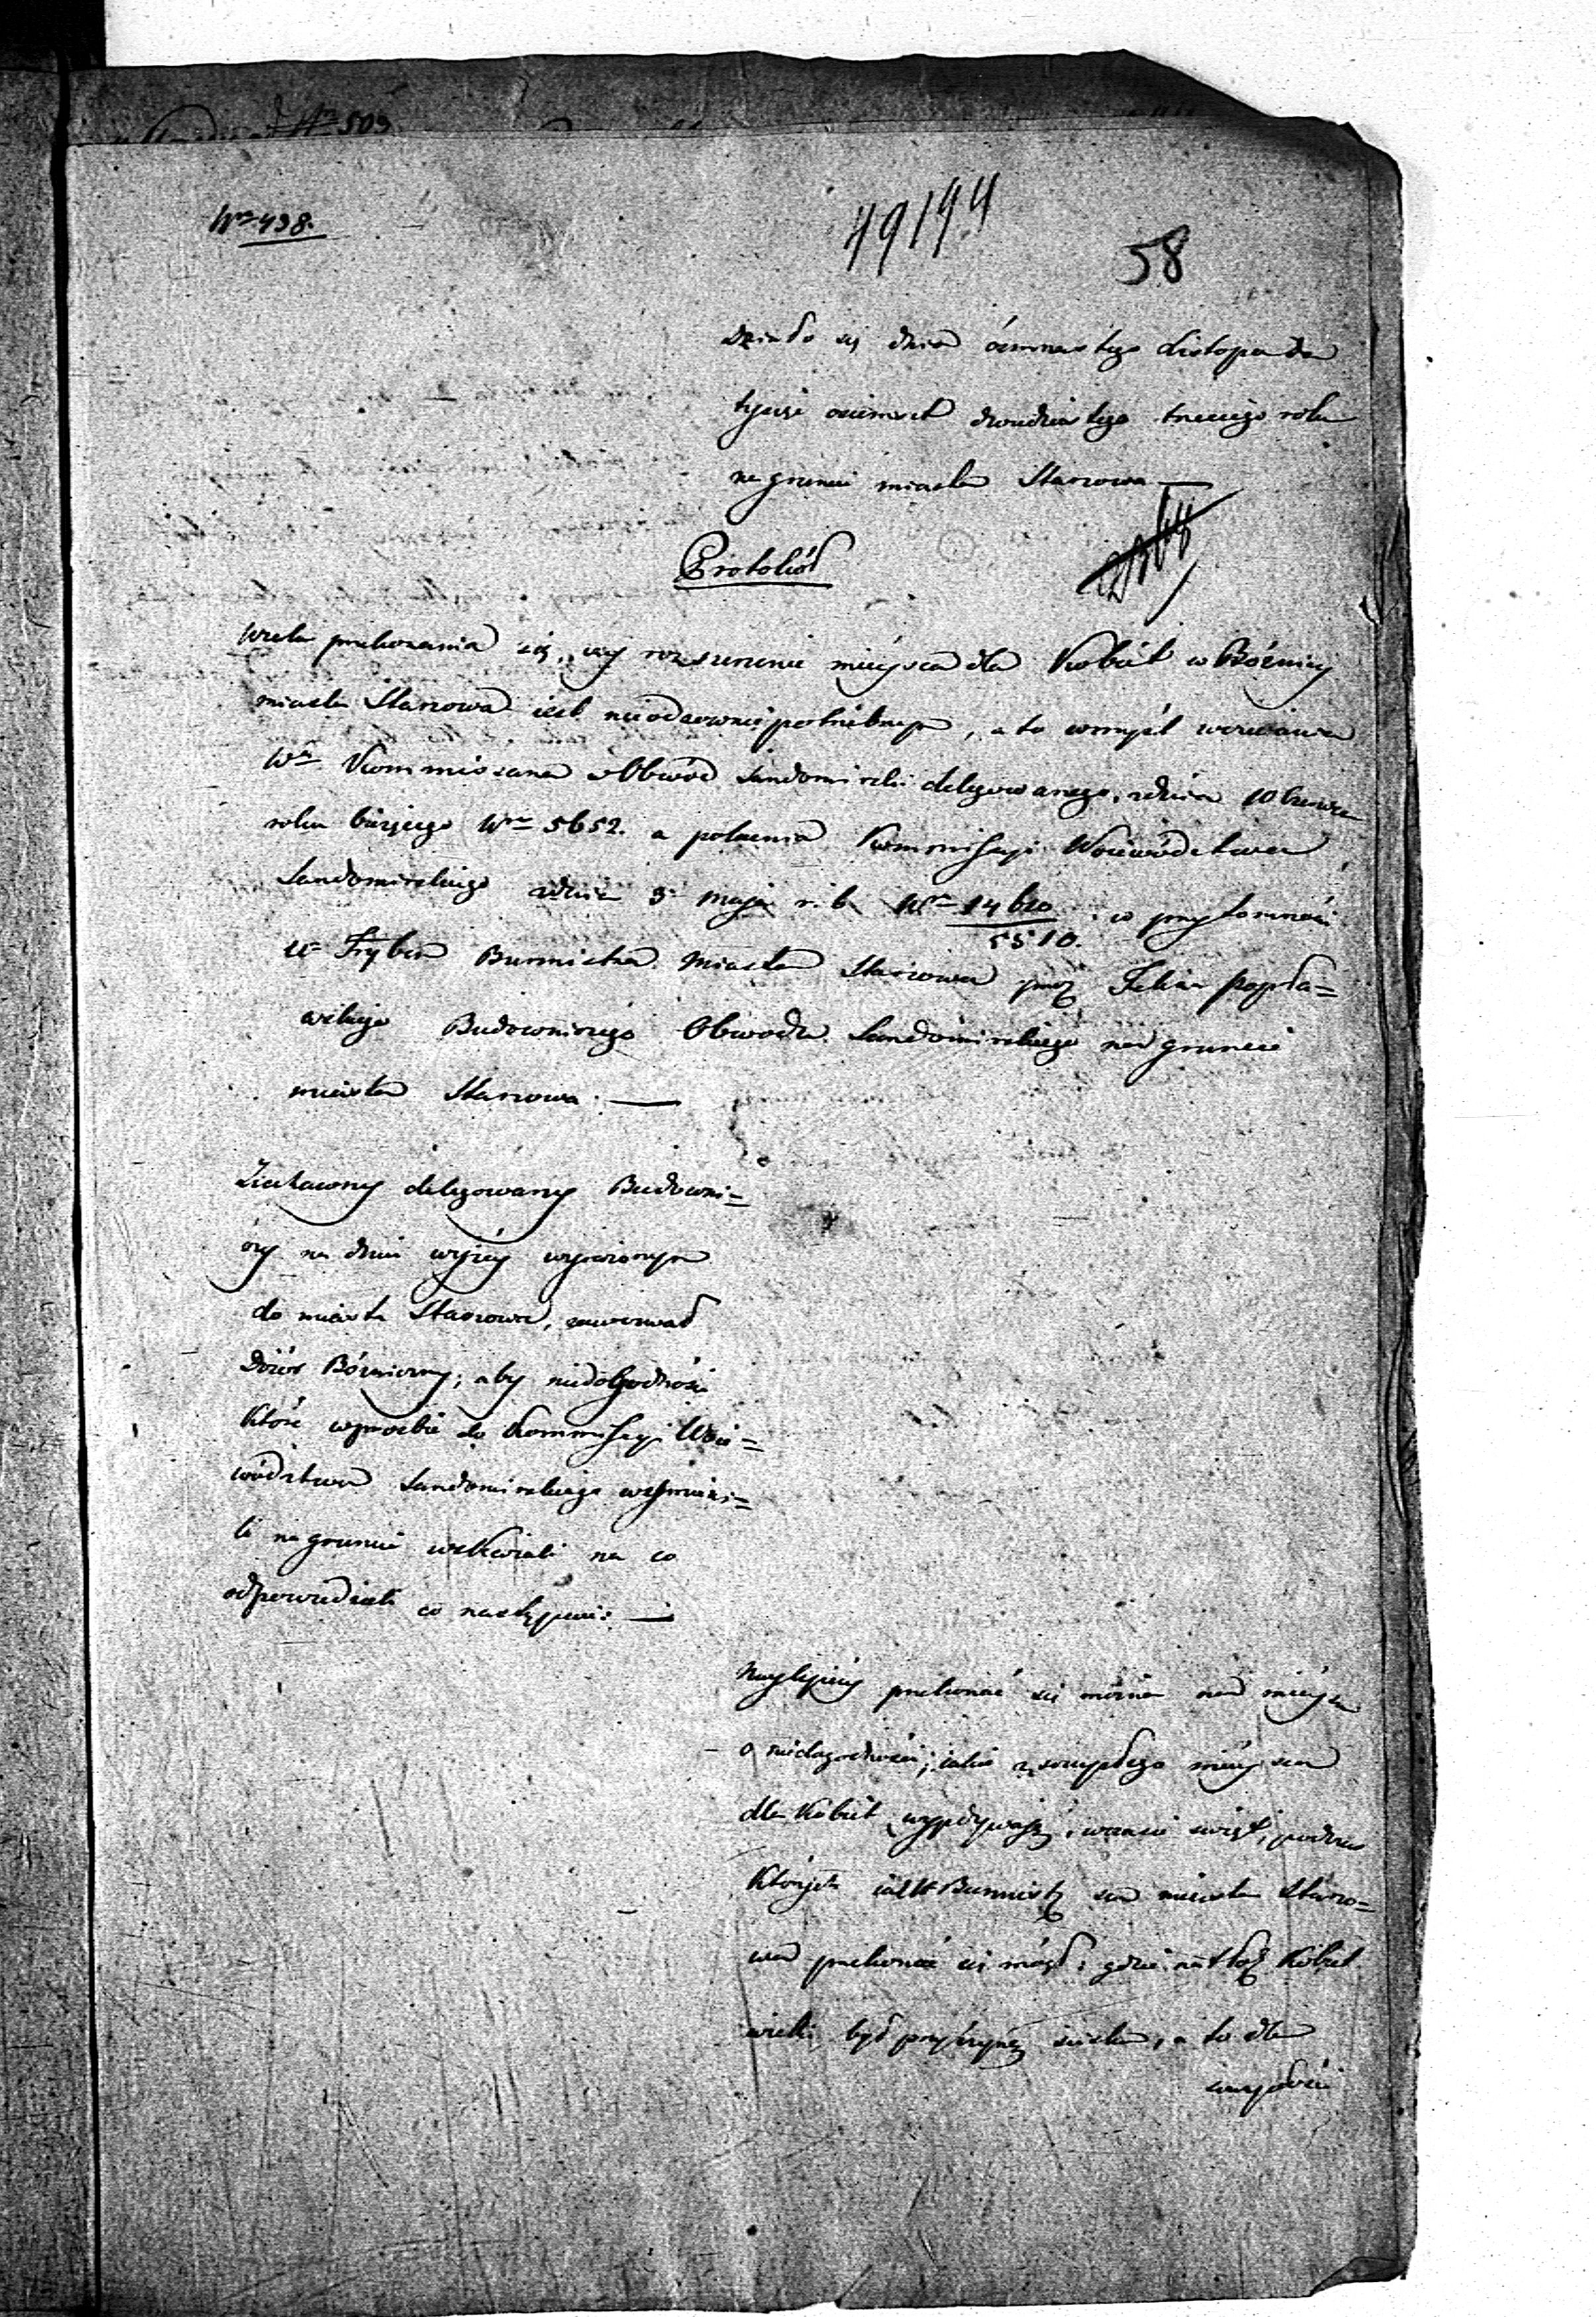 Nro 438.
49194
58
Działo się dnia ósmnastego Listopada
tysiąc osiemset dwudziestego trzeciego roku
na gruncie miasta Staszowa —
Protokół
W celu przekonania się, czy rozszerzenie mieysca dla Kobiét w Bóżnicy
miasta Staszowa jest nieodzownie potrzebnym, a to w myśl wezwania
Wo Kommissarza w Obwód Sandomirski delegowanego, z dnia 10 Czerwca
roku bieżącego Nro 5652. a polecenia Kommissyi Woiewództwa
Sandomirskiego z dnia 3 Maja r. b. Nro 14620/5510. w przytomności
W Frybes Burmistrza Miasta Staszowa przez Felixa Popła=
wskiego Budowniczego Obwodu Sandomirskiego na gruncie
miasta Staszowa. —
Ziechawszy delegowany Budowni=
czy na dniu wyżéy wyrażonym
do miasta Staszowa, zawezwał
Dozór Bóżniczny, aby niedogodności
które w prośbie do Kommissyi Woie=
wództwa Sandomirskiego wymieni=
li na gruncie wskazali na co
odpowiedzieli co następuie: —
Naylepiéy przekonać się można na mieyscu
o niedogodności, jakie z szczupłego mieysca
dla Kobiét wypływaią, w czasie świąt, podczas
których jak W Burmistrz sam miasta Staszo=
wa przekonać się mógł, gdzie natłok Kobiet
wielki był przyczyną ścisku, a to dla
szczupłości